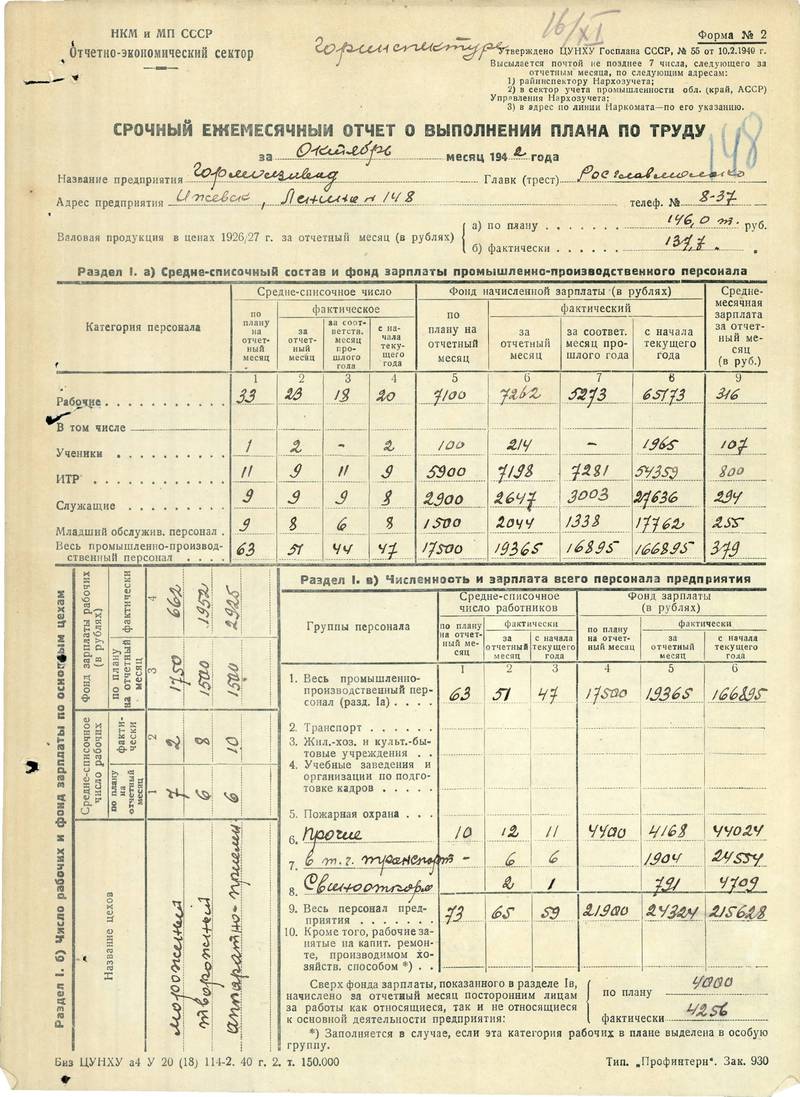 НКМ и МП СССР
Отчетно-экономический сектор
16/XI
Горинспектуре
Форма № 2
Утверждено ЦУНХУ Госплана СССР, № 55 от 10.2.1940 г.
Высылается почтой не позднее 7 числа, следующего за
отчетным месяца, по следующим адресам:
1) райинспектору Нархозучета;
2) в сектор учета промышленности обл. (край, АССР)
Управления Нархозучета;
3) в адрес по линии Наркомата—по его указанию.
148
СРОЧНЫЙ ЕЖЕМЕСЯЧНЫЙ ОТЧЕТ О ВЫПОЛНЕНИИ ПЛАНА ПО ТРУДУ
за Октябрь месяц 1942 года
Название предприятия Гормолзавод Главк (трест) Росглавмолоко
Адрес предприятия Ижевск, Ленина 148 телеф. № 8-37
Валовая продукция в ценах 1926/27 г. за отчетный месяц (в рублях)
а) по плану 146,0 т. руб.
б) фактически 137,7 "
Раздел I. а) Средне-списочный состав и фонд зарплаты промышленно-производственного персонала
Категория персонала
Средне-списочное число
по плану на отчетный месяц
фактическое
за отчетный месяц
за соответств. месяц прошлого года
с начала текущего года
Фонд начисленной зарплаты (в рублях)
по плану на отчетный месяц
фактический
за отчетный месяц
за соответ. месяц прошлого года
с начала текущего года
Среднемесячная зарплата за отчетный месяц (в руб.)
1 2 3 4 5 6 7 8 9
Рабочие 33 23 18 20 7100 7262 5273 65173 316
В том числе
Ученики 1 2 - 2 100 214 — 1965 107
ИТР 11 9 11 9 5900 7198 7281 54359 800
Служащие 9 9 9 8 2900 2647 3003 27636 294
Младший обслужив. персонал 9 8 6 8 1500 2044 1338 17762 255
Весь промышленно-производственный персонал 63 51 44 47 17500 19365 16895 166895 379
Раздел I. б) Число рабочих и фонд зарплаты по основным цехам
Название цехов
Средне-списочное число рабочих
по плану на отчетный месяц
фактически
Фонд зарплаты рабочих (в рублях)
по плану на отчетный месяц
фактически
1 2 3 4
мороженый 7 2 1750 662
творожный 6 8 1500 1952
аппаратно-приемн 6 10 1500 2925
Раздел I. в) Численность и зарплата всего персонала предприятия
Группы персонала
Средне-списочное число работников
по плану на отчетный месяц
фактически
за отчетный месяц
с начала текущего года
Фонд зарплаты (в рублях)
по плану на отчетный месяц
фактически
за отчетный месяц
с начала текущего года
1 2 3 4 5 6
1. Весь промышленно-
производственный персонал (разд. Iа) 63 51 47 17500 19365 166895
2. Транспорт
3. Жил.-хоз. и культ.-бытовые учреждения
4. Учебные заведения и
организации по подготовке кадров
5. Пожарная охрана
6. Прочие 10 12 11 4400 4168 44024
7. в т.ч. транспорт - 6 6 1904 24554
8. 2 1 791 4709
9. Весь персонал предприятия 73 65 59 21900 24324 215628
10. Кроме того, рабочие занятые на капит. ремонте, производимом хозяйств. способом *)
Сверх фонда зарплаты, показанного в разделе Iв,
начислено за отчетный месяц посторонним лицам
за работы как относящиеся, так и не относящиеся
к основной деятельности предприятия:
по плану 4000
фактически 4256
*) Заполняется в случае, если эта категория рабочих в плане выделена в особую
группу.
Биз ЦУНХУ а4 У 20 (18) 114-2. 40 г. 2. т. 150.000
Тип. „Профинтерн". Зак. 930